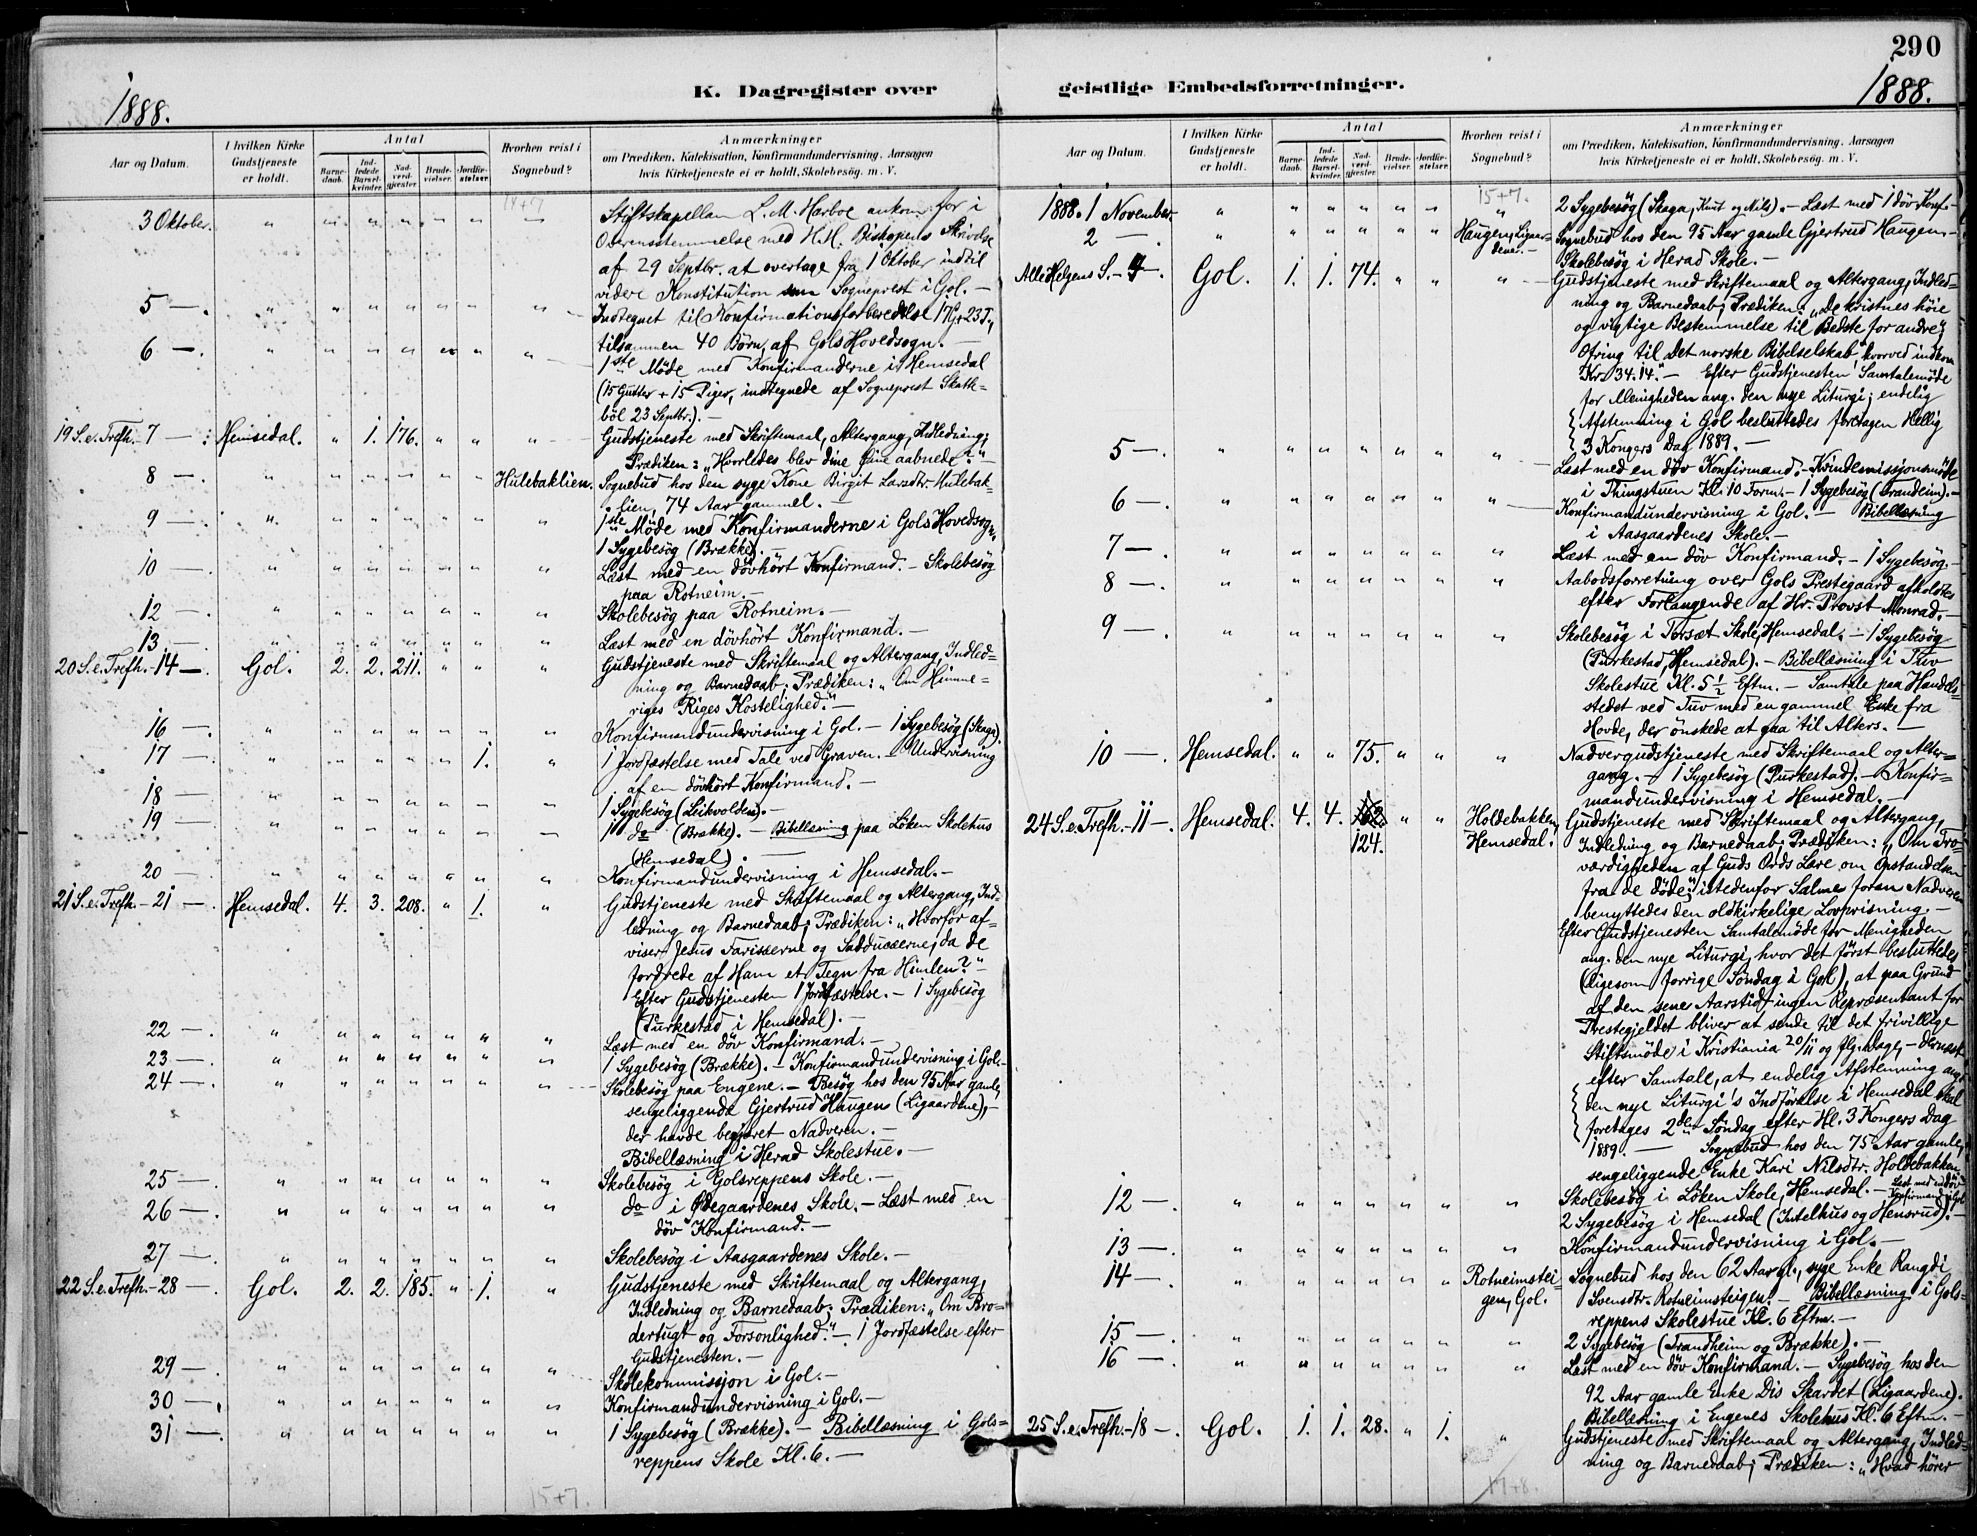 290
1888.
1888.
K. Dagregister over geistlige Embedsforretninger.
Aar og Datum.
I hvilken Kirke Gudstjeneste er holdt.
Antal
Barne-daab.
Ind-ledede Barsel-kvinder.
Nad-verd-gjester.
Brude-vielser.
Jordfæ-stelser.
Hvorhen reist i Sognebud?
Anmærkninger
om Prædiken, Katekisation, Konfirmandundervisning, Aarsagen
hvis Kirketjeneste ei er holdt, Skolebesøg. m. V.
3 Oktober. " " " " " " " Stiftskapellan L. M. Harboe ankom for i
Overensstemmelse med H.H. Biskopens Skrivelse
af 29 Septbr. at overtage fra 1 Oktober indtil
videre Konstitution som Sogneprest i Gol. —
5 — . " " " " " " " Indtegnet til Konfirmationsforberedelse 17G + 23P.,
tilsammen 40 Børn, af Gols Hovedsogn. —
6 — . " " " " " " " 1ste Möde med Konfirmanderne i Hemsedal
(15 Gutter + 15 Piger, indtegnede af Sogneprest Skatte-
böl 23 Septbr.). —
19 S. e. Trefh. 7 — . Hemsedal. " 1. 176. " " " Gudstjeneste med Skriftemaal, Altergang, Indledning;
Prædiken: "Hvorledes blev dine Øine aabnede?" —
8 — . " " " " " " Hulebaklien. Sognebud hos den syge Kone Birgit Larsdtr Hulebak-
lien, 74 Aar gammel. —
9 — . " " " " " " " 1ste Möde med Konfirmanderne i Gols Hovedsogn.
1 Sygebesög (Brække). —
10 — . " " " " " " " Læst med en dövhört Konfirmand. — Skolebesög
paa Rotneim. —
12 — . " " " " " " " Skolebesög paa Rotneim. —
13 — . " " " " " " " Læst med en dövhört Konfirmand. —
20 S. e. Trefh. 14 — . Gol. 2. 2. 211. " " " Gudstjeneste med Skriftemaal og Altergang, Indled-
ning og Barnedaab; Prædiken: "Om Himme-
riges Riges Kostelighed." —
16 — . " " " " " " " Konfirmandundervisning i Gol. — 1 Sygebesög (Skaga).
17 — . " " " " " 1. " 1 Jordfæstelse med Tale ved Graven. — Undervisning
af en dövhört Konfirmand. —
18 — . " " " " " " " 1 Sygebesög (Leikvolden). —
19 — . " " " " " " " 1 do (Brække). — Bibellæsning paa Löken Skolehus
(Hemsedal). —
20 — . " " " " " " " Konfirmandundervisning i Hemsedal. —
21 S. e. Trefh. 21 — . Hemsedal. 4. 3. 208. " 1. " Gudstjeneste med Skriftemaal og Altergang, Ind-
ledning og Barnedaab; Prædiken: "Hvorfor af-
viser Jesus Farisæerne og Sadducæerne, da de
fordrede af Ham et Tegn fra Himlen?" —
Efter Gudstjenesten 1 Jordfæstelse. — 1 Sygebesög
(Turkestad i Hemsedal). —
22 — . " " " " " " " Læst med en döv Konfirmand. —
23 — . " " " " " " " 1 Sygebesög (Brække). — Konfirmandundervisning i Gol. —
24 — . " " " " " " " Skolebesög paa Engene. — Besög hos den 95 Aar gamle,
sengeliggende Gjertrud Haugen (Ligaardene),
der havde begjæret Nadveren. —
Bibellæsning i Herad Skolestue. —
25 — . " " " " " " " Skolebesög i Golsreppens Skole. —
26 — . " " " " " " " do i Ødegaardenes Skole. — Læst med en
döv Konfirmand. —
27 — . " " " " " " " Skolebesög i Aasgaardenes Skole. —
22 S. e. Trefh. 28 — . Gol. 2. 2. 185. " 1. " Gudstjeneste med Skriftemaal og Altergang,
Indledning og Barnedaab; Prædiken: "Om Bro-
dertugt og Forsonlighed." — 1 Jordfæstelse efter
Gudstjenesten. —
29 — . " " " " " " " Skolekommissjon i Gol. —
30 — . " " " " " " " Konfirmandundervisning i Gol. —
31 — . " " " " " " " 1 Sygebesög (Brække). — Bibellæsning i Gols-
reppens Skole Kl. 6. —
15+7.
Aar og Datum.
I hvilken Kirke Gudstjeneste er holdt.
Antal
Barne-daab.
Ind-ledede Barsel-kvinder.
Nad-verd-gjester.
Brude-vielser.
Jordfæ-stelser.
Hvorhen reist i Sognebud?
Anmærkninger
om Prædiken, Katekisation, Konfirmandundervisning, Aarsagen
hvis Kirketjeneste ei er holdt, Skolebesøg. m. V.
15+7.
1888. 1 November. " " " " " " " 2 Sygebesög (Skaga, Knut og Nils). — Læst med 1 döv Konf. —
2 — . " " " " " " Haugen, Ligaar-denes. — Sognebud hos den 95 Aar gamle Gjertrud Haugen. —
Skolebesög i Herad Skole. —
Alle Helgens S. 4 — . Gol. 1. 1. 74. " " " Gudstjeneste med Skriftemaal og Altergang, Indled-
ning og Barnedaab; Prædiken: "De kristnes höie
og vigtige Bestemmelse til Bedste for andre";
Ofring til "det norske Bibelselskab", hvorved indkom
Kr. 34.14. — Efter Gudstjenesten Samtalemöde
for Menigheden ang. den nye Liturgi; endelig
Afstemning i Gol besluttedes foretagen Hellig
3 Kongers Dag 1889. —
5 — . " " " " " " " Læst med en döv Konfirmand. — Kvindemissjonsmöde
i Thingstuen Kl. 10 Form. — 1 Sygebesög (Trandeim). —
6 — . " " " " " " " Konfirmandundervisning i Gol. — Bibellæsning
i Aasgaardenes Skole. —
7 — . " " " " " " " Læst med en döv Konfirmand. — 1 Sygebesög. —
8 — . " " " " " " " Aabodsforretning over Gols Prestegaard afholdtes
efter Forlangende af Hr. Provst Monrad. —
9 — . " " " " " " " Skolebesög i Torset Skole, Hemsedal. — 1 Sygebesög
(Turkestad, Hemsedal). — Bibellæsning i Tuv
Skolestue Kl. 5 1/2 Eftm. — Samtale paa Handels-
stedet ved Tuv med en gammel Enke fra
Hovde, der önskede at gaa til Alters. —
10 — . Hemsedal. " " 75. " " " Nadvergudstjeneste med Skriftemaal og Alter-
gang. — 1 Sygebesög (Turkestad). — Konfir-
mandundervisning i Hemsedal. —
24 S. e. Trefh. 11 — . Hemsedal. 4. 4. 124. " " Holdebakken, Hemsedal. Gudstjeneste med Skriftemaal og Altergang,
Indledning og Barnedaab; Prædiken: "Om Tro-
værdigheden af Guds Ords Lære om Opstandelsen
fra de döde"; istedenfor Salme foran Nadveren
benyttedes den oldkirkelige Lovprisning. —
Efter Gudstjenesten Samtalemöde for Menigheden
ang. den nye Liturgi, hvor det först besluttedes
(ligesom forrige Söndag i Gol), at paa Grund
af den sene Aarstid ingen Repræsentant for
Prestegjeldet bliver at sende til det frivillige
Stiftsmöde i Kristiania 20/11 og flg. Dage, — dernæst
efter Samtale, at endelig Afstemning ang.
den nye Liturgi's Indförelse i Hemsedal skal
foretages 2den Söndag efter Hl. 3 Kongers Dag
1889. — Sognebud hos den 75 Aar gamle,
sengeliggende Enke Kari Nilsdtr. Holdebakken. —
12 — . " " " " " " " Skolebesög i Löken Skole, Hemsedal. — Læst med en döv Konfirmand i Gol
2 Sygebesög i Hemsedal (Intelhus og Hensrud). —
13 — . " " " " " " " Konfirmandundervisning i Gol. —
14 — . " " " " " " Rotneimstei gen, Gol. Sognebud hos den 62 Aar gl., syge Enke Rangdi
Svensdtr. Rotneimsteigen. — Bibellæsning i Gols-
reppens Skolestue Kl. 6 Eftm. —
15 — . " " " " " " " 2 Sygebesög (Trandheim og Brække). —
16 — . " " " " " " " Læst med en döv Konfirmand. — Sygebesög hos den
92 Aar gamle Enke Dis Skardet (Ligaardene).
Bibellæsning i Engenes Skolehus Kl. 6 Eftm. —
25 S. e. Trefh. 18 — . Gol. 1. 1. 28. " 1. " Gudstjeneste med Skriftemaal og Altergang, Indled-
ning og Barnedaab; Prædiken: "Hvad hörer